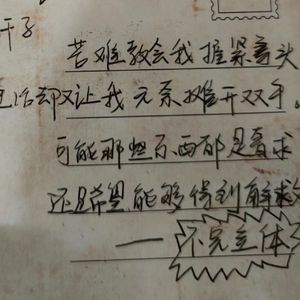 干子
苦难教会我握紧拳头
生活却又让我无奈摊开双手。
可能那些东西都是奢求
还是希望能够得到解救
——不完主体